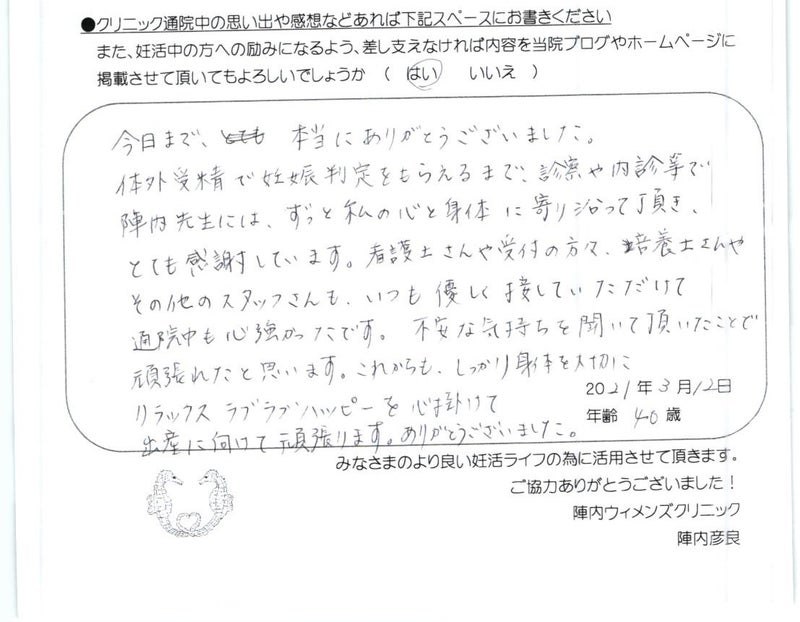 ●クリニック通院中の思い出や感想などあれば下記スペースにお書きください
また、妊活中の方への励みになるよう、差し支えなければ内容を当院ブログやホームページに
掲載させて頂いてもよろしいでしょうか （ はい いいえ ）
今日まで、とても 本当にありがとうございました。
体外受精で妊娠判定をもらえるまで、診察や内診等で
陣内先生には、ずっと私の心と身体に寄り沿って頂き、
とても感謝しています。看護士さんや受付の方々、培養士さんや
その他のスタッフさんも、いつも優しく接していただけて
通院中も心強かったです。 不安な気持ちを聞いて頂いたことで
頑張れたと思います。これからも、しっかり身体を大切に
リラックス ラブラブハッピーを心掛けて
出産に向けて頑張ります。ありがとうございました。
2021年3月12日
年齢 40歳
みなさまのより良い妊活ライフの為に活用させて頂きます。
ご協力ありがとうございました！
陣内ウィメンズクリニック
陣内彦良